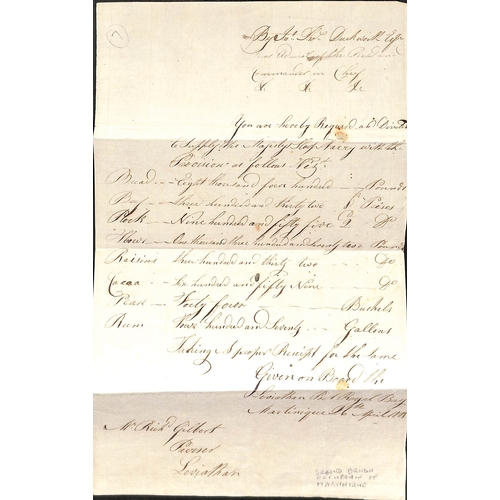 7
By Jno. Thos. Duckworth Esqr.
Rear Admiral of the Red and
Commander in Chief
&. &. &c
You are hereby Required and Directed
to Supply His Majestys Sloop with the
Provisions as follows Vizt.
Bread — Eight thousand four hundred — Pounds
Beef — three hundred and thirty two Pieces
Pork — Nine hundred and fifty five Do
Flour — One thousand three hundred and twenty two Pounds
Raisins three hundred and thirty two — Do
Cocoa — Six hundred and fifty Nine — Do
Pease — Forty four — Bushels
Rum Four hundred and Seventy — Gallons
Taking A proper Receipt for the Same
Given on Board the
Leviathan Port Royal Bay
Martinique April
Mr. Richd. Gilbert
Purser
Leviathan
SECOND BRITISH
OCCUPATION OF
MARTINIQUE